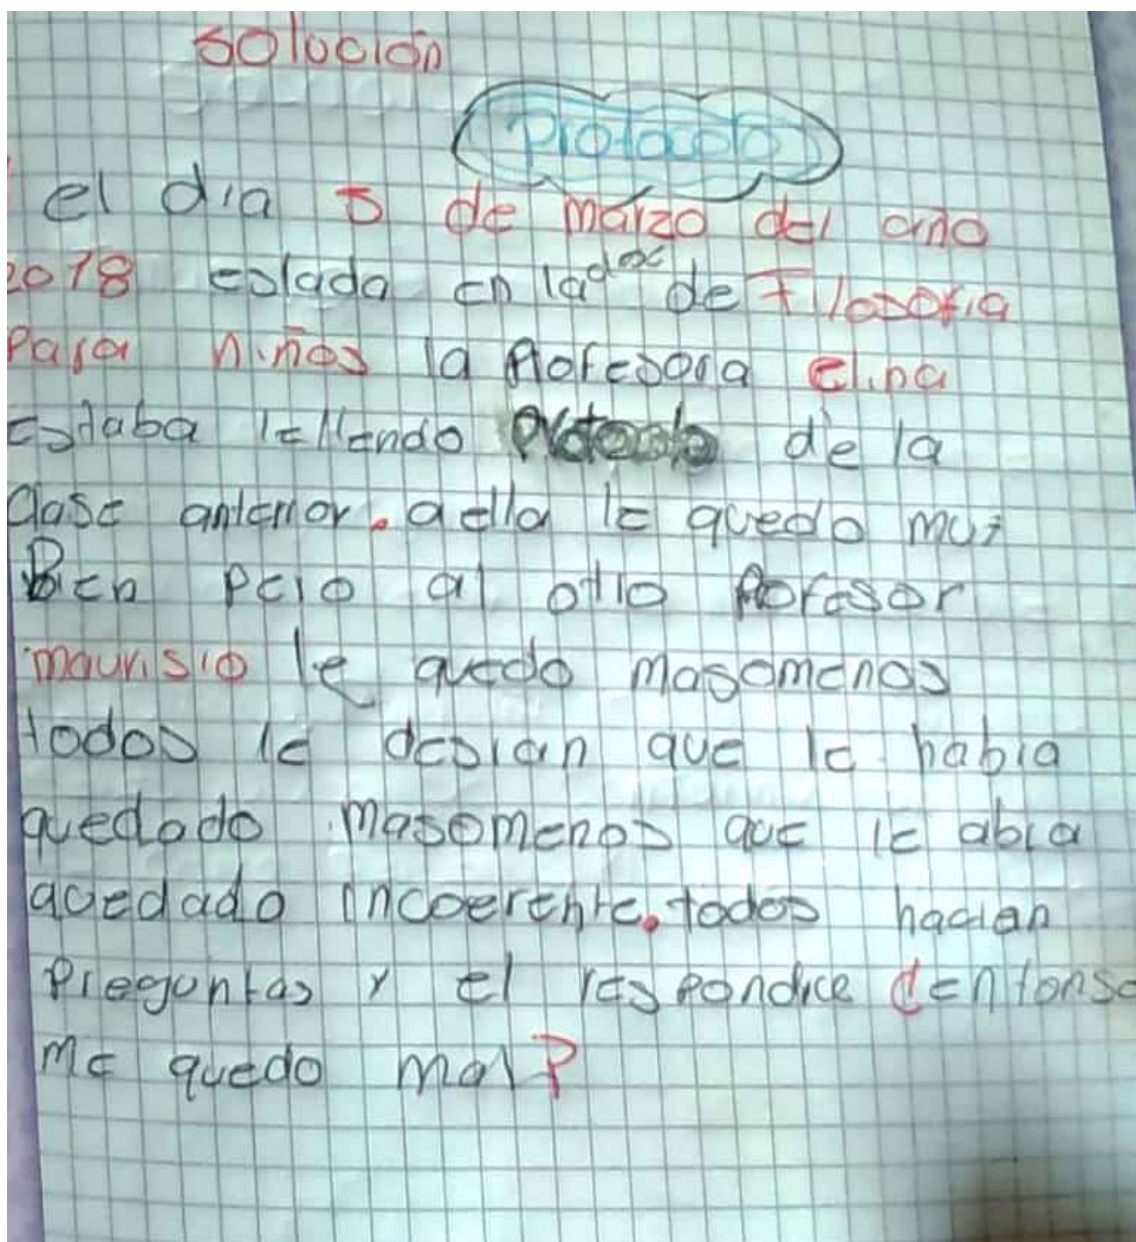 solución
Protocolo
el dia 5 de marzo del año
2018 estada en la de Filosofia
Para niños la Profesora elina
estaba lellendo Protocolo de la
clase anterior. a ella le quedo mui
Bien pero al otro Profesor
maurisio le quedo masomenos
todos le desian que le habia
quedado masomenos que le abia
quedado incoerente. todos hacian
Preguntas y el respondice ¿entonse
me quedo mal?